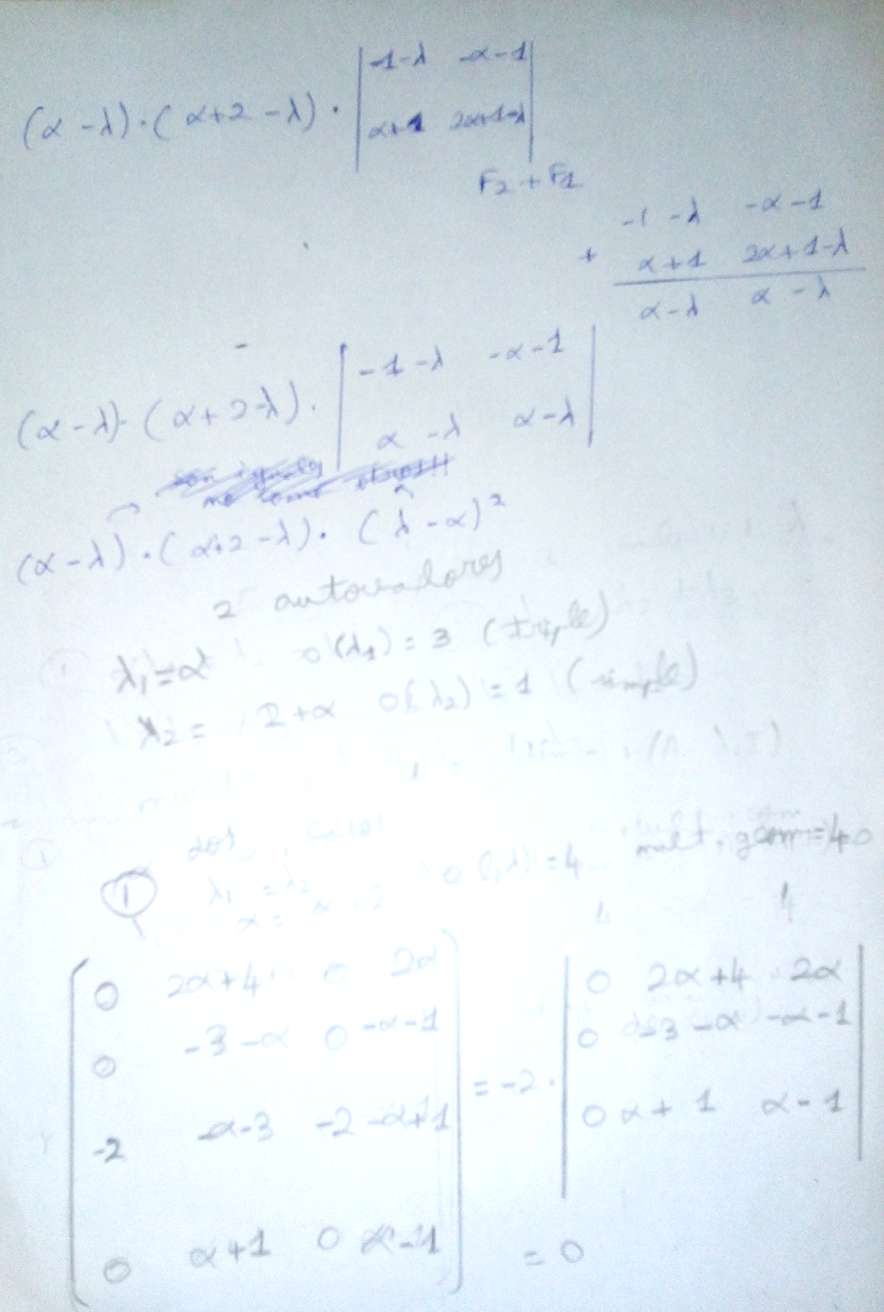 (α - λ) · (α+2 - λ) · | -1-λ -α-1 |
| α+1 2α+1-λ |
F2 + F1
-1 -λ -α -1
+ α+1 2α+1-λ
α-λ α - λ
(α - λ) · (α+2-λ) · | -1-λ -α-1 |
| α -λ α-λ |
(α-λ) · (α+2-λ) · (λ-α)²
2 autovalores
λ1=α o(λ1)=3 (triple)
λ2= 2+α o(λ2)=1 (simple)
① o(λ)=4 mult. geom=
0 2α+4 0 2α = -2 · | 0 2α+4 2α |
0 -3-α 0 -α-1 | 0 -3-α -α-1 |
-2 -α-3 -2 -α+1 | 0 α+1 α-1 |
0 α+1 0 α-1 = 0